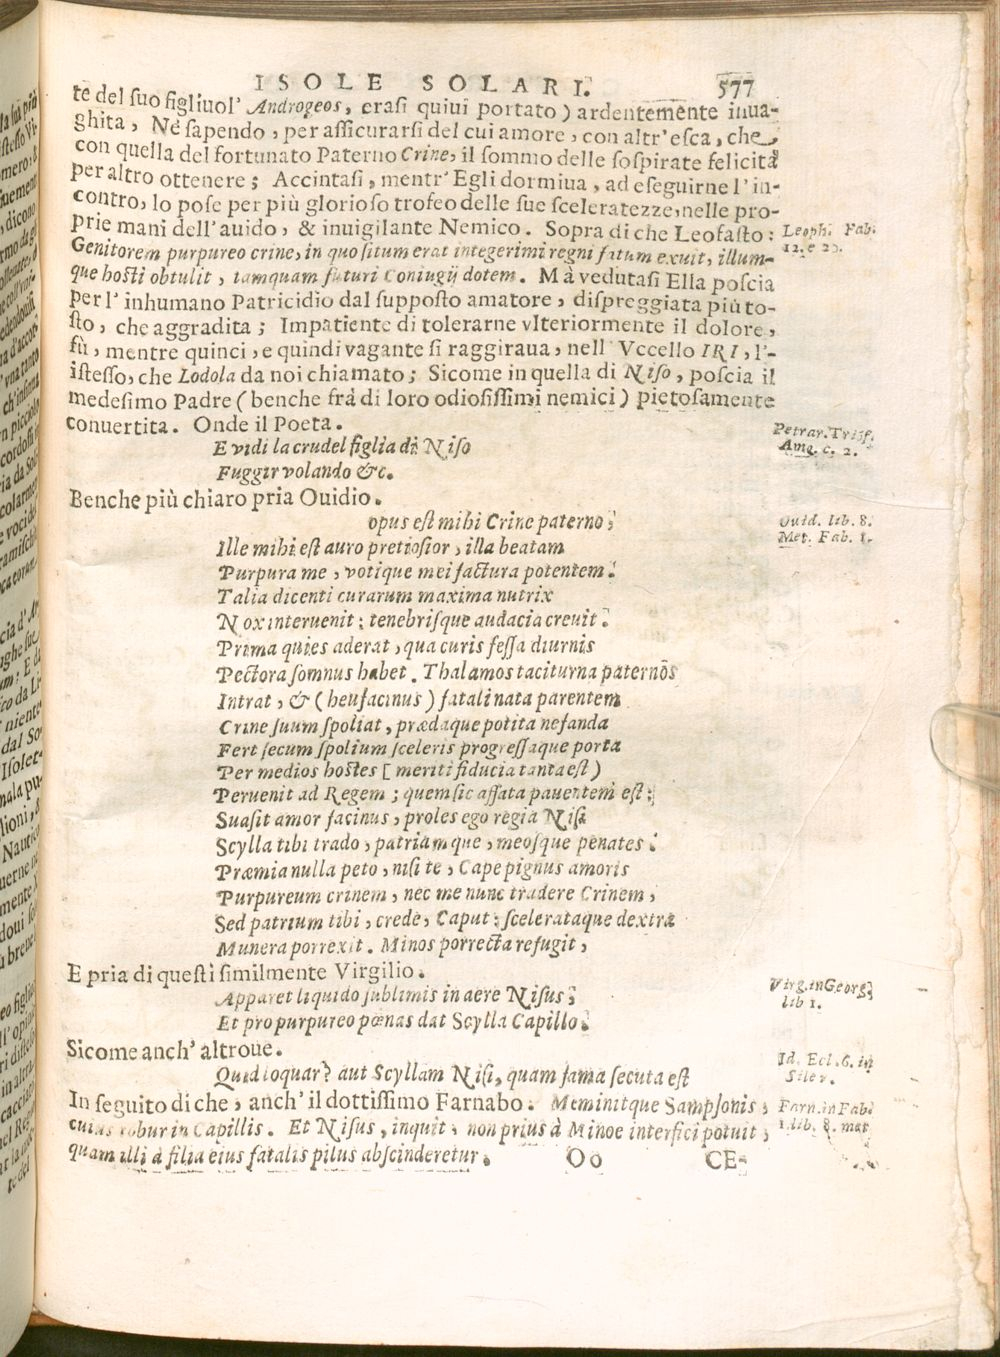 ISOLE SOLARI. 577
te del ſuo figliuol' Androgeos, eraſi quiui portato) ardentemente inua-
ghita, Nè ſapendo, per aſſicurarſi del cui amore, con altr'eſca, che
con quella del fortunato Paterno Crine, il ſommo delle ſoſpirate felicità
per altro ottenere; Accintaſi, mentr' Egli dormiua, ad eſeguirne l'in-
contro, lo poſe per più glorioſo trofeo delle ſue ſceleratezze, nelle pro-
prie mani dell'auido, & inuigilante Nemico. Sopra di che Leofaſto: Leoph. Fab.
Genitorem purpureo crine, in quo ſitum erat integerimi regni fatum exuit, illum- 12. e 23.
que hoſti obtulit, tamquam futuri Coniugij dotem. Mà vedutaſi Ella poſcia
per l'inhumano Patricidio dal ſuppoſto amatore, diſpreggiata più to-
ſto, che aggradita; Impatiente di tolerarne vlteriormente il dolore,
fù, mentre quinci, e quindi vagante ſi raggiraua, nell' Vccello IRI, l'-
iſteſſo, che Lodola da noi chiamato; Sicome in quella di Niſo, poſcia il
medeſimo Padre (benche frà di loro odioſiſſimi nemici) pietoſamente
conuertita. Onde il Poeta.
E vidi la crudel figlia di Niſo Petrar. Triof.
Fuggir volando &c. Amo. c. 2.
Benche più chiaro pria Ouidio.
opus eſt mihi Crine paterno; Ouid. lib. 8.
Ille mihi eſt auro pretioſior, illa beatam Met. Fab. 1.
Purpura me, votique mei factura potentem.
Talia dicenti curarum maxima nutrix
Nox interuenit: tenebriſque audacia creuit.
Prima quies aderat, qua curis feſſa diurnis
Pectora ſomnus habet. Thalamos taciturna paternos
Intrat, & (heu facinus) fatali nata parentem
Crine ſuum ſpoliat, prædaque potita nefanda
Fert ſecum ſpolium ſceleris progreſſaque porta
Per medios hoſtes [ meriti fiducia tanta eſt)
Peruenit ad Regem; quem ſic affata pauentem eſt:
Suaſit amor facinus, proles ego regia Niſi
Scylla tibi trado, patriamque, meoſque penates.
Præmia nulla peto, niſi te, Cape pignus amoris
Purpureum crinem, nec me nunc tradere Crinem,
Sed patrium tibi, crede, Caput: ſcelerataque dextra
Munera porrexit. Minos porrecta refugit,
E pria di queſti ſimilmente Virgilio.
Apparet liquido ſublimis in aere Niſus; Virg. in Georg.
Et pro purpureo pœnas dat Scylla Capillo. lib 1.
Sicome anch' altroue.
Quid loquar? aut Scyllam Niſi, quam fama ſecuta eſt Id. Ecl. 6. in
Silen.
In ſeguito di che, anch' il dottiſſimo Farnabo. Meminitque Sampſonis, Farn. in Fab.
cuius robur in Capillis. Et Niſus, inquit, non prius à Minoe interfici potuit, 1. lib. 8. met
quam illi à filia eius fatalis pilus abſcinderetur.
Oo CE-